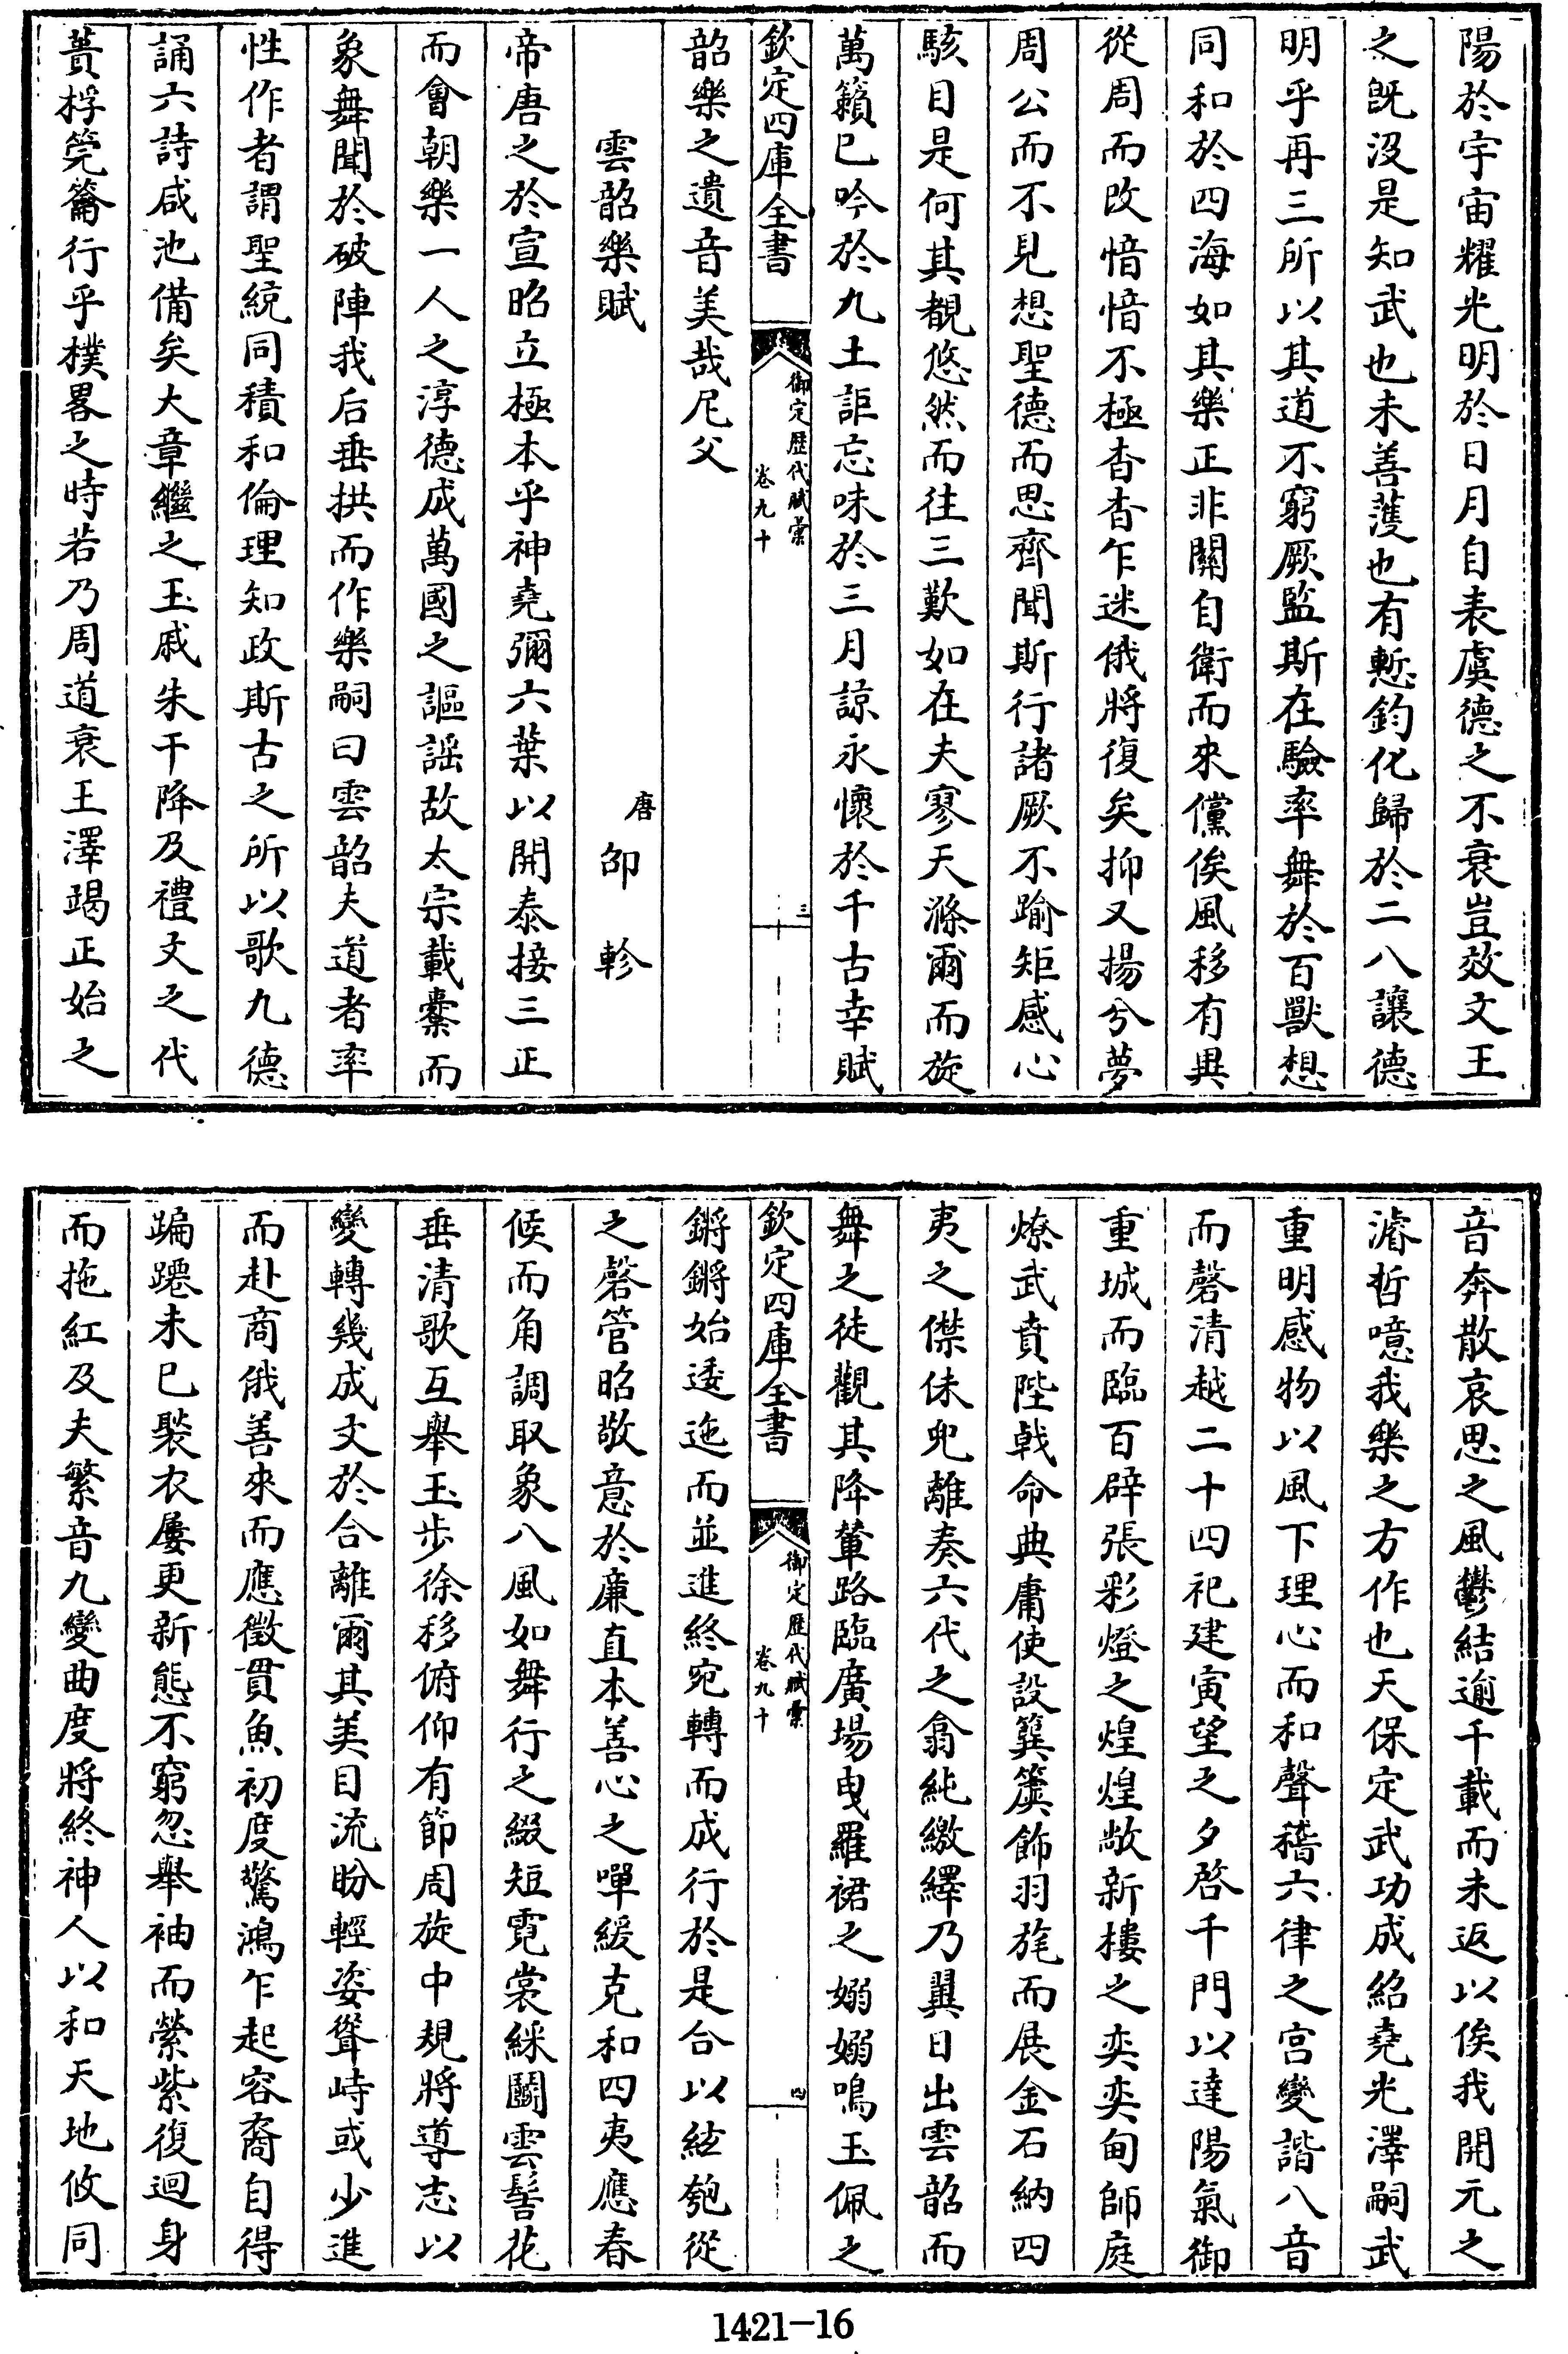 陽於宇宙耀光明於日月自表虞德之不衰豈效文王
之既沒是知武也未善濩也有慙鈞化歸於二八讓德
明乎再三所以其道不窮厥監斯在驗率舞於百獸想
同和於四海如其樂正非關自衛而來儻俟風移有異
從周而改愔愔不極杳杳乍迷俄將復矣抑又揚兮夢
周公而不見想聖德而思齊聞斯行諸厥不踰矩感心
駭目是何其覩悠然而往三歎如在夫寥天滌爾而旋
萬籟已吟於九土詎忘味於三月諒永懷於千古幸賦
欽定四庫全書
御定歷代賦彙
卷九十
三
韶樂之遺音美哉尼父
雲韶樂賦
唐 邵軫
帝唐之於宣昭立極本乎神堯彌六葉以開泰接三正
而會朝樂一人之淳德成萬國之謳謡故太宗載櫜而
象舞聞於破陣我后垂拱而作樂嗣曰雲韶夫道者率
性作者謂聖統同積和倫理知政斯古之所以歌九德
誦六詩咸池備矣大章繼之玉戚朱干降及禮文之代
蕢桴筦籥行乎樸畧之時若乃周道衰王澤竭正始之
音奔散哀思之風鬱結逾千載而未返以俟我開元之
濬哲噫我樂之方作也天保定武功成紹堯光澤嗣武
重明感物以風下理心而和聲稽六律之宫變諧八音
而磬清越二十四祀建寅望之夕啓千門以達陽氣御
重城而臨百辟張彩燈之煌煌敞新樓之奕奕甸師庭
燎武賁陛戟命典庸使設簨簴飾羽旄而展金石納四
夷之傑休兜離奏六代之翕純繳繹乃翼日出雲韶而
舞之徒觀其降輦路臨廣場曳羅裙之嫋嫋鳴玉佩之
欽定四庫全書
御定歷代賦彙
卷九十
四
鏘鏘始逶迤而並進終宛轉而成行於是合以絃匏從
之磬管昭敬意於廉直本善心之嘽緩克和四夷應春
候而角調取象八風如舞行之綴短霓裳綵鬭雲髻花
垂清歌互舉玉步徐移俯仰有節周旋中規將導志以
變轉幾成文於合離爾其美目流盼輕姿聳峙或少進
而赴商俄善來而應徵貫魚初度驚鴻乍起容裔自得
蹁躚未已褧衣屢更新態不窮忽舉袖而縈紫復迴身
而拖紅及夫繁音九變曲度將終神人以和天地攸同
1421-16